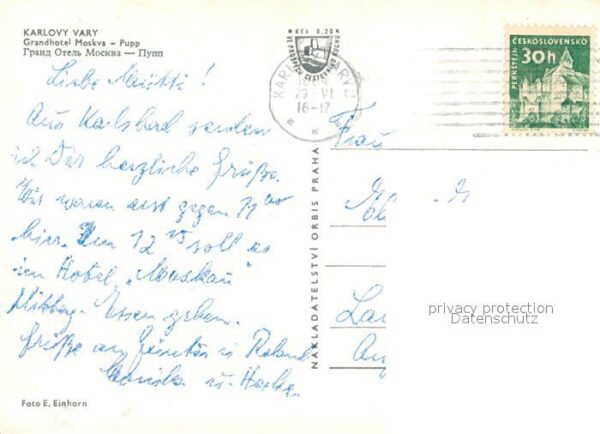 KARLOVY VARY
Grandhotel Moskva – Pupp
Гранд Отель Москва — Пупп
Liebe Mutti !
Aus Karlsbad senden
ich Dir herzliche Grüße.
Wir waren erst gegen 11 00
hier. Um 12 15 soll es
im Hotel „Moskau"
Mittag-Essen geben.
Grüße an Günter u. Roland
u.
Foto E. Einhorn
KČS 0,20
VE PROSPĚCH CESTOVNÍHO RUCHU
KARLOVY VARY
29. VI
16-17
NAKLADATELSTVÍ ORBIS PRAHA
ČESKOSLOVENSKO
PERNŠTEJN
30 h
Frau
privacy protection
Datenschutz